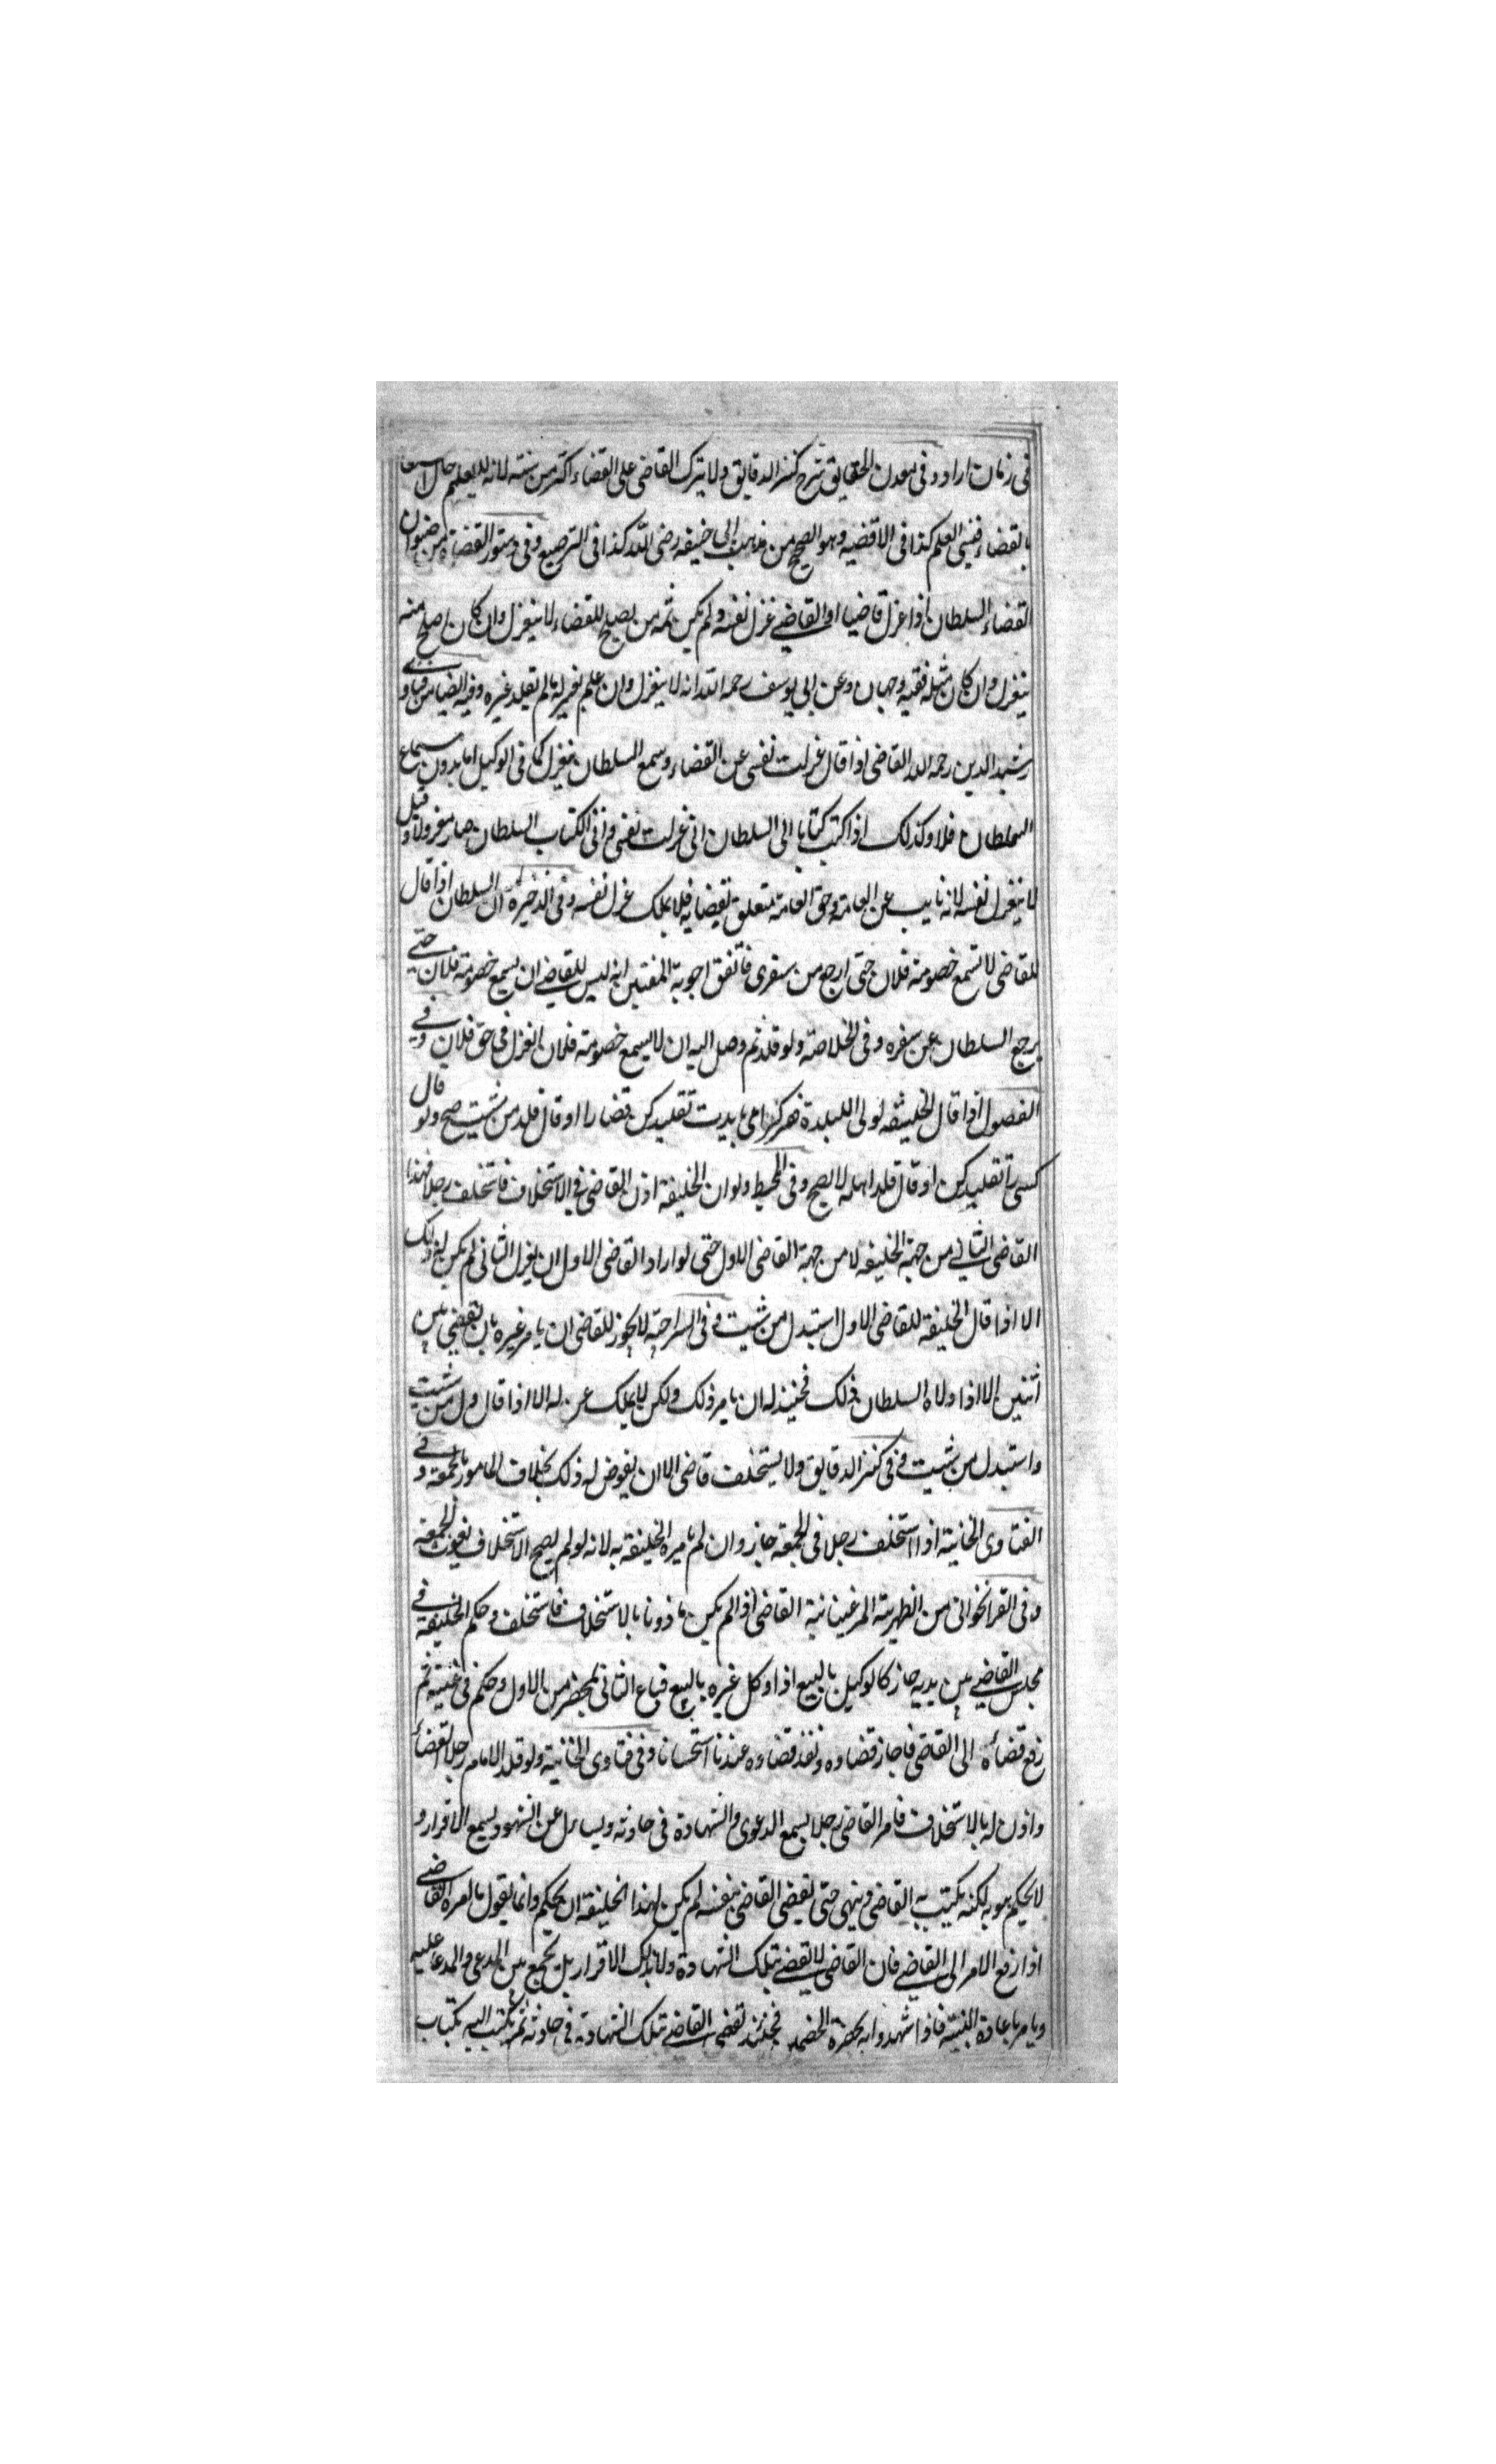 فى زمان اراد وفى معدن الحقايق شرح كنز الدقايق ولا يترك القاضى على القضاء اكثر من سنته لانه يعلم حال اشتغاله
بالقضاء فينسى العلم كذا فى الاقضيه وهو الصحيح من مذهب ابى حنيفه رضى الله كذا فى الترصيع وفى دستور القضاة من
القضاء السلطان اذا عزل قاضيا او القاضى عزل نفسه ولم يكن ثمه من يصلح للقضاء لا ينعزل وان كان اصلح منه
ينعزل وان كان مثله ففيه وجهان وعن ابى يوسف رحمه الله انه لا ينعزل وان علم بعزله مالم يقلد غيره وفيه ايضا من فتاوى
رشيد الدين رحمه الله القاضى اذا قال عزلت نفسى عن القضاء وسمع السلطان ينعزل كما فى الوكيل اما بدون سماع
السلطان فلا وكذلك اذا كتب كتابا الى السلطان انى عزلت نفسى واتى الكتاب السلطان صار معزولا وقيل
لا ينعزل نفسه لانه نايب عن العامة وحق العامة متعلق بقضايه فلا يملك عزل نفسه وفى الذخيرة ان السلطان اذا قال
للقاضى لا تسمع خصومة فلان حتى ارجع من سفرى فاتفق اجوبة المفتين انه ليس للقاضى ان يسمع خصومة فلان حتى
يرجع السلطان عن سفره وفى الخلاصة ولو قلد ثم وصل اليه ان لا يسمع خصومة فلان انعزل فى حق فلان وفى
الفصول اذا قال الخليفه لوالى البلدة هر كرا مى بايدت تقليد كن قضا را او قال قلد من شيت صح ولو قال
كسى را تقليد كن او قال قلد اهله لا يصح وفى المحيط ولو ان الخليفة اذن القاضى فى الاستخلاف فاستخلف رجلا فهذا
القاضى الثانى من جهة الخليفه لا من جهة القاضى الاول حتى لو اراد القاضى الاول ان يعزل الثانى لم يكن له ذلك
الا اذا قال الخليفة للقاضى الاول استبدل من شيت وفى السراجية لا يجوز للقاضى ان يامر غيره بان يقضى بين
اثنين الا اذا ولاه السلطان ذلك فحينئذ له ان يامر ذلك ولكن لا يملك عزله الا اذا قال ول من شيت
واستبدل من شيت وفى كنز الدقايق ولا يستخلف قاضى الا ان يفوض له ذلك بخلاف المامور بالجمعة وفى
الفتاوى الخانية اذا استخلف رجلا فى الجمعة جاز وان لم يامره الخليفة به لانه لو لم يصح الاستخلاف يفوت الجمعة
وفى القراخوانى من الظهيرية المرغينانية القاضى اذا لم يكن ماذونا بالاستخلاف فاستخلف وحكم الخليفة فى
مجلس القاضى بين يديه جاز كالوكيل بالبيع اذا وكل غيره بالبيع فباع الثانى بمحضر من الاول وحكم فى غيبته ثم
رفع قضاءه الى القاضى فاجاز قضاوه ونفذ قضاوه عندنا استحسانا وفى فتاوى الخانية ولو قلد الامام رجلا القضاء
واذن له بالاستخلاف فامر القاضى رجلا يسمع الدعوى والشهادة فى حادثه ويسال عن الشهود ويسمع الاقرار و
لا يحكم هو به لكنه يكتب به القاضى وينهى حتى يقضى القاضى بنفسه لم يكن لهذا الخليفة ان يحكم وانما يقول ما امره القاضى
اذا رفع الامر الى القاضى فان القاضى لا يقضى بتلك الشهادة ولا بذلك الاقرار بل يجمع بين المدعى والمدعا عليه
ويامر باعادة البينه فاذا شهدوا به بحضرة الخصمين فحينئذ يقضى القاضى بتلك الشهادة فى حادثه ثم يكتب اليه بكتاب